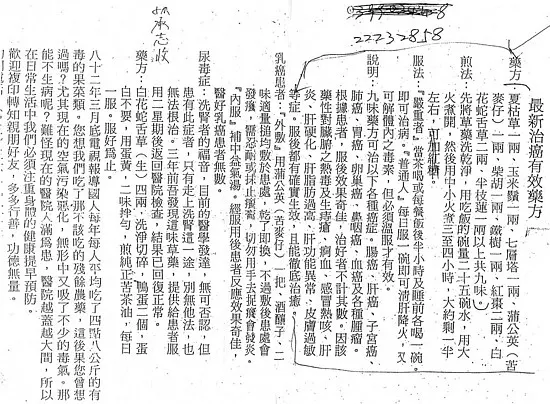 22232858
承志收
最新治癌有效藥方
藥方：夏枯草二兩、玉米鬚二兩、七層塔一兩、蒲公英（苦
麥仔）一兩、柴胡一兩、鐵樹一兩、紅棗二兩、白
花蛇舌草二兩、半枝蓮一兩以上共九味）
煎法：先將藥草洗乾淨，用吃飯的碗量二十五碗水，用大
火煮開，然後用中小火煮三至四小時，大約剩一半
左右，可加紅糖。
服法：『嚴重者』當茶喝或每餐飯後半小時及睡前各喝一碗。
即可治病。『普通人』每日服一碗即可清肝降火，又
可解體內之毒素，但必須溫服才有效。
說明：九味藥方可治以下各種癌症。腸癌、肝癌、子宮癌、
肺癌、胃癌、卵巢癌、鼻咽癌、血癌及各種腫瘤。
根據患者，服後效果奇佳，治好者不計其數。因該
藥性對臟腑之熱毒及生痔瘡、痢血、感冒熱咳、肝
炎、肝硬化、肝脂肪過高、肝功能異常、皮膚過敏
等症。服後都有確實生效，且能徹底治癒。
乳癌患者：『外敷』用蒲公英（苦麥仔）一把，酒釀子，二
味適量搥均敷於患處，乾了即換，不過敷後患處會
發癢，醫忍耐或抹止癢膏，切勿用手去捉癢會發炎。
『內服』補中益氣湯。經服用後患者反應效果奇佳，
醫好乳癌患者無數。
尿毒症：洗腎者的福音，目前的醫學發達，無可否認，但
患有此症者，只有走上洗腎這一途，別無他法，也
無法根治。三年前吾發現這味草藥，提供給患者服
用二星期後返回醫院檢查，結果已回復正常。
藥方：白花蛇舌草（生）四兩、洗淨切碎，鴨蛋二個，蛋
白不要，用蛋黃，二味拌勻，煎純正苦茶油，每日
一服。服好為止。
八十二年三月底電視報導國人每年每人平均吃了四點八公斤的有
毒的果菜類。您想我們吃了那不該吃的殘餘農藥，這後果您曾想
過嗎？尤其現在的空氣污染惡化，無形中又吸了不少的毒氣。那
能不生病呢？難怪現在的醫院人滿為患，醫院越蓋越大間，所以
在日常生活中我們必須注重身體的健康提早預防。
歡迎複印轉知親朋好友，多多行善，功德無量。